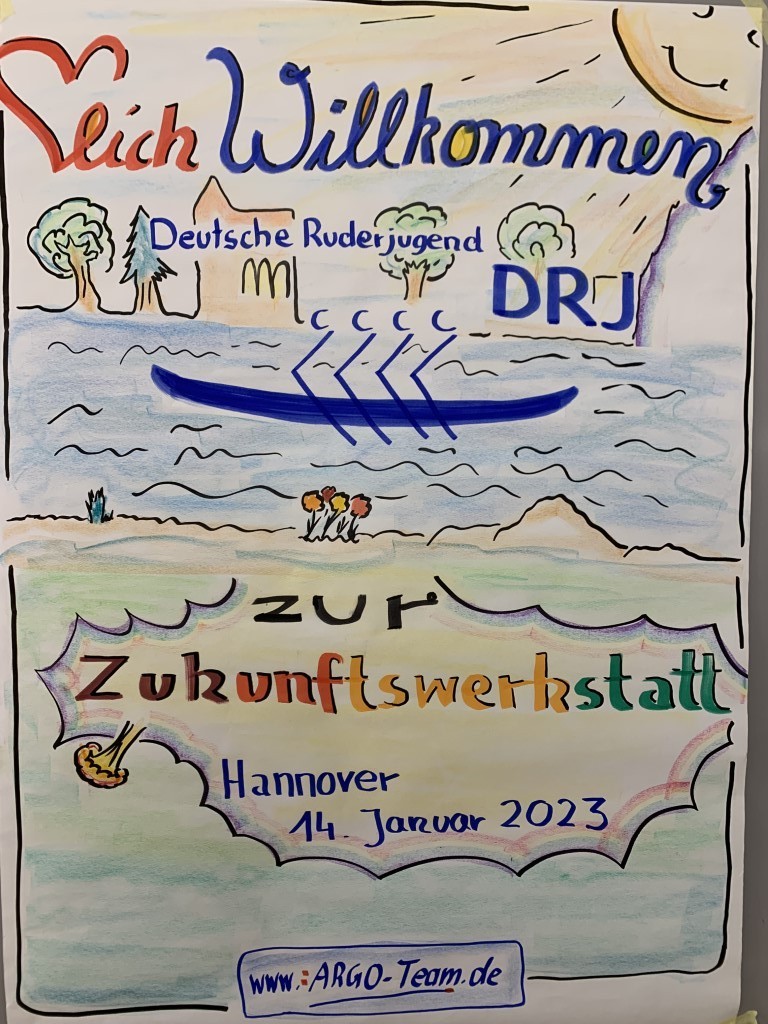 lich Willkommen
Deutsche Ruderjugend
DRJ
zur
Zukunftswerkstatt
Hannover
14. Januar 2023
www.:ARGO-Team.de